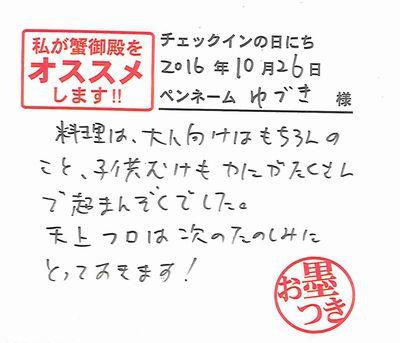 私が蟹御殿を
オススメ
します!!
チェックインの日にち
2016年10月26日
ペンネーム ゆづき 様
料理は、大人向けはもちろんの
こと、子供むけもかにがたくさん
で超まんぞくでした。
天上フロは次のたのしみに
とっておきます!
お墨
つき